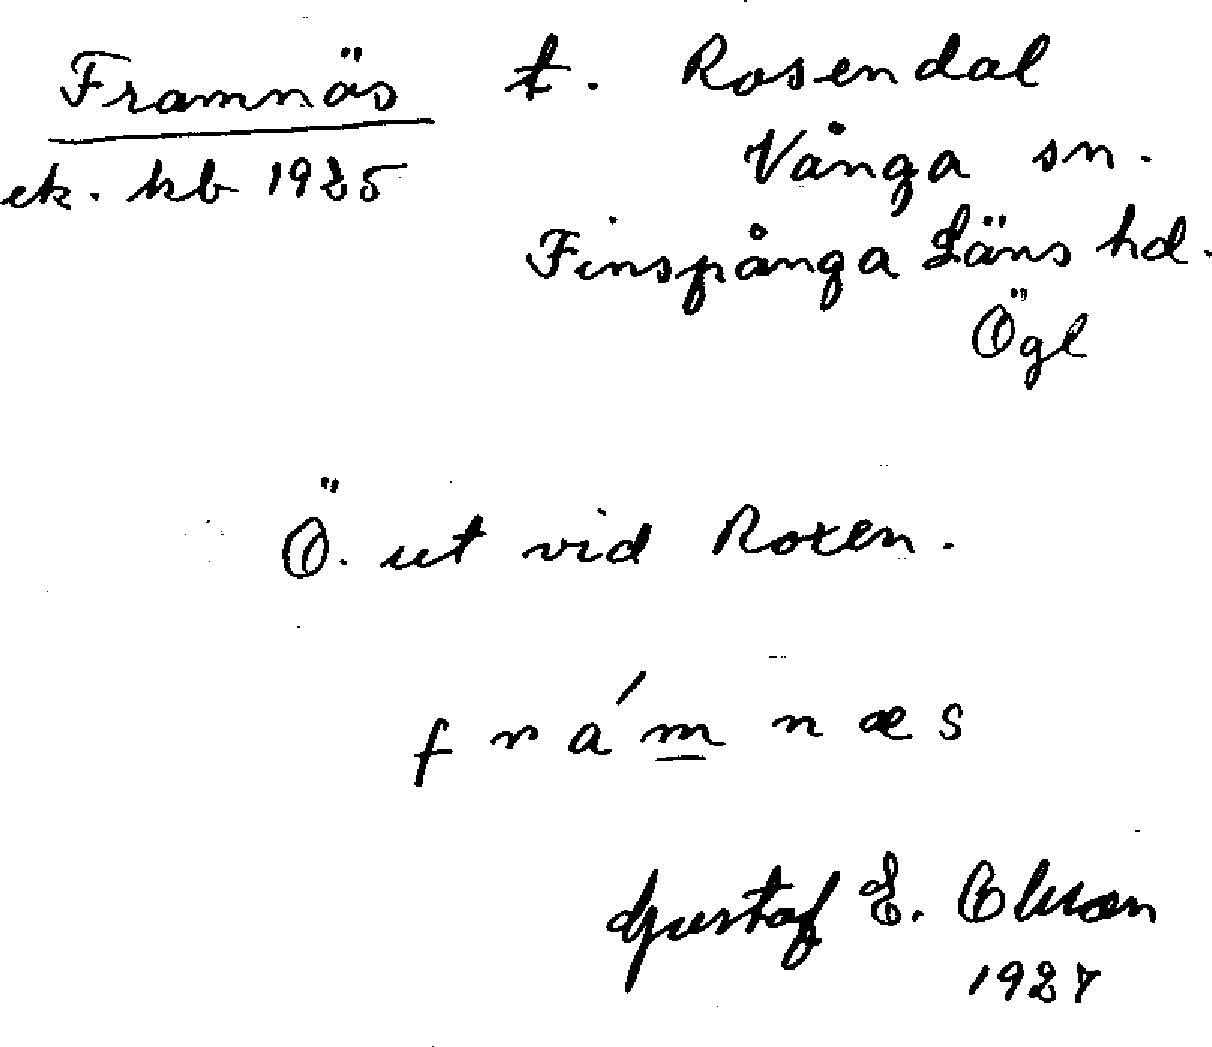 Framnäs t. Rosendal
ek. kb 1925 Vånga sn.
Finspånga Läns hd.
Ögl
Ö. ut vid Roxen.
f r á m n æ s
Gustaf E. Olsson
1927